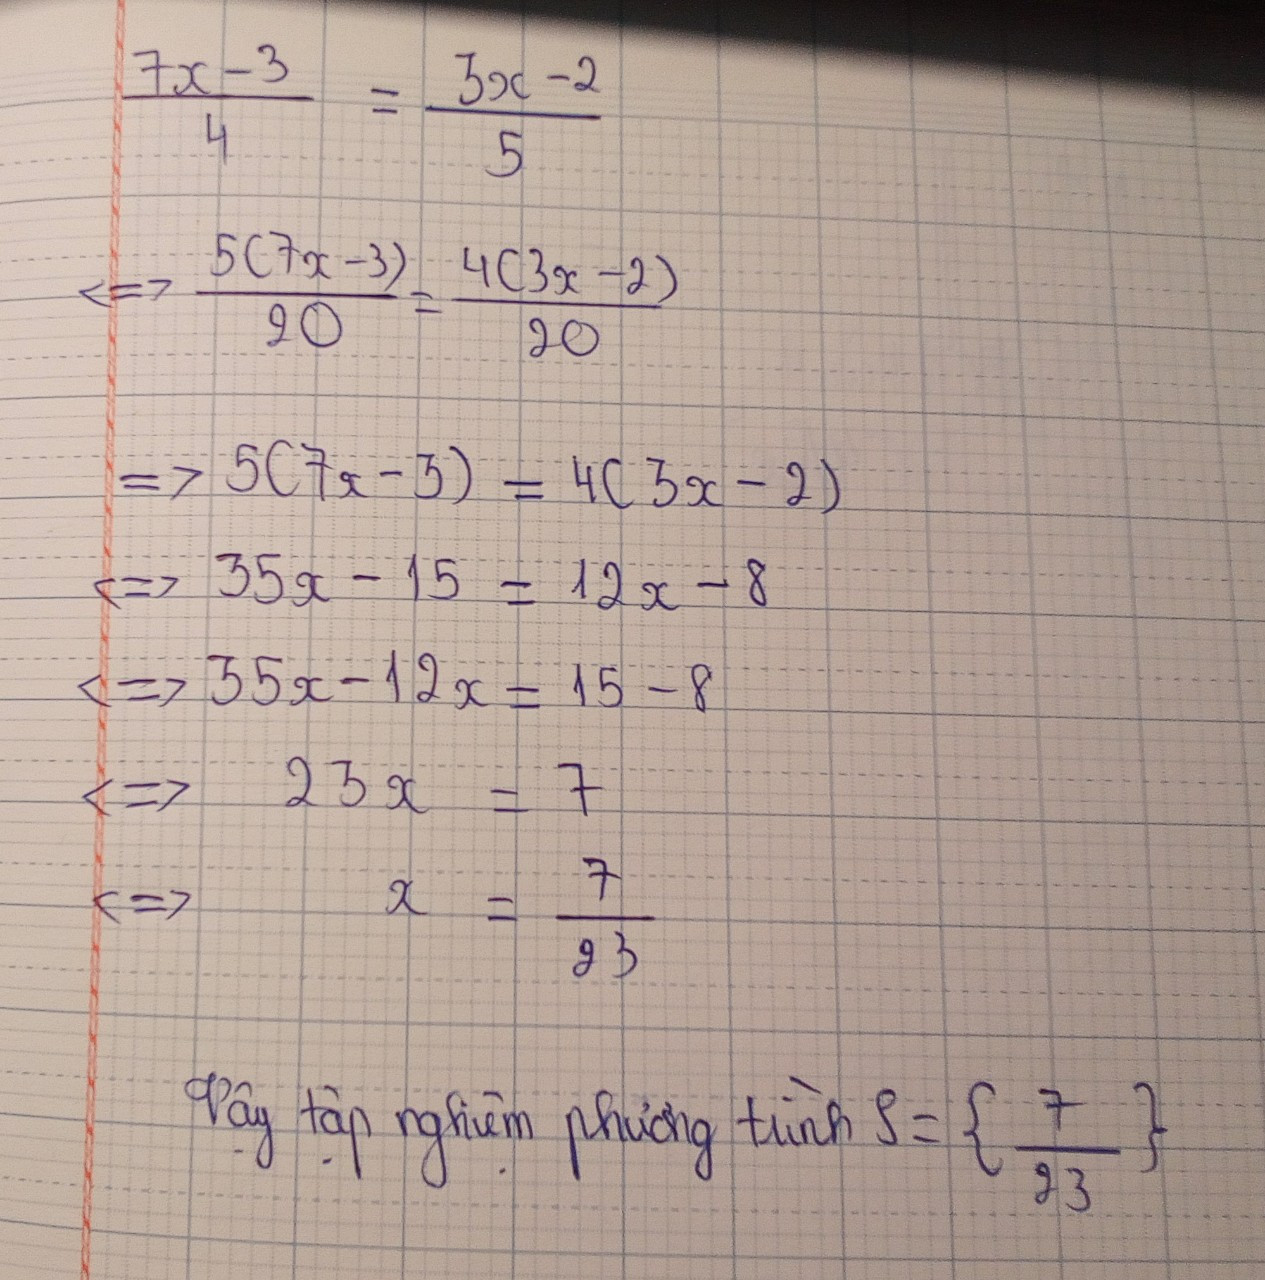 7x - 3 / 4 = 3x - 2 / 5
<=> 5(7x - 3) / 20 = 4(3x - 2) / 20
=> 5(7x - 3) = 4(3x - 2)
<=> 35x - 15 = 12x - 8
<=> 35x - 12x = 15 - 8
<=> 23x = 7
<=> x = 7 / 23
Vậy tập nghiệm phương trình S = { 7 / 23 }